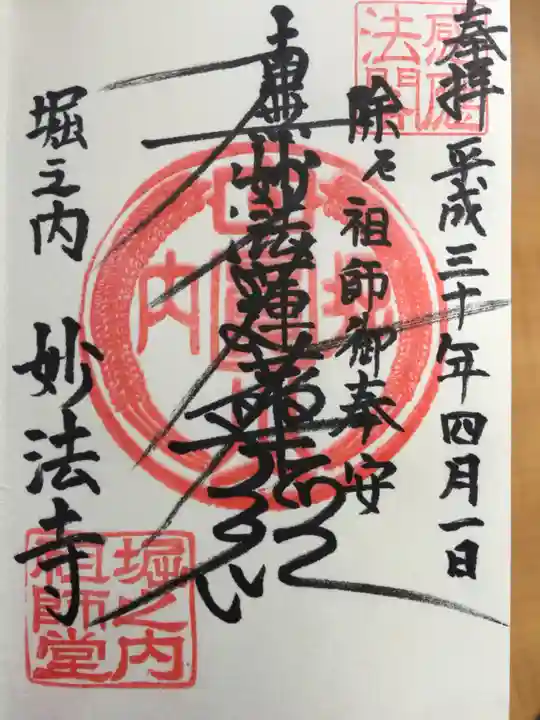 奉拝
平成三十年四月一日
除厄 祖師御奉安
南無妙法蓮華経
堀之内 妙法寺
堀之内
祖師堂